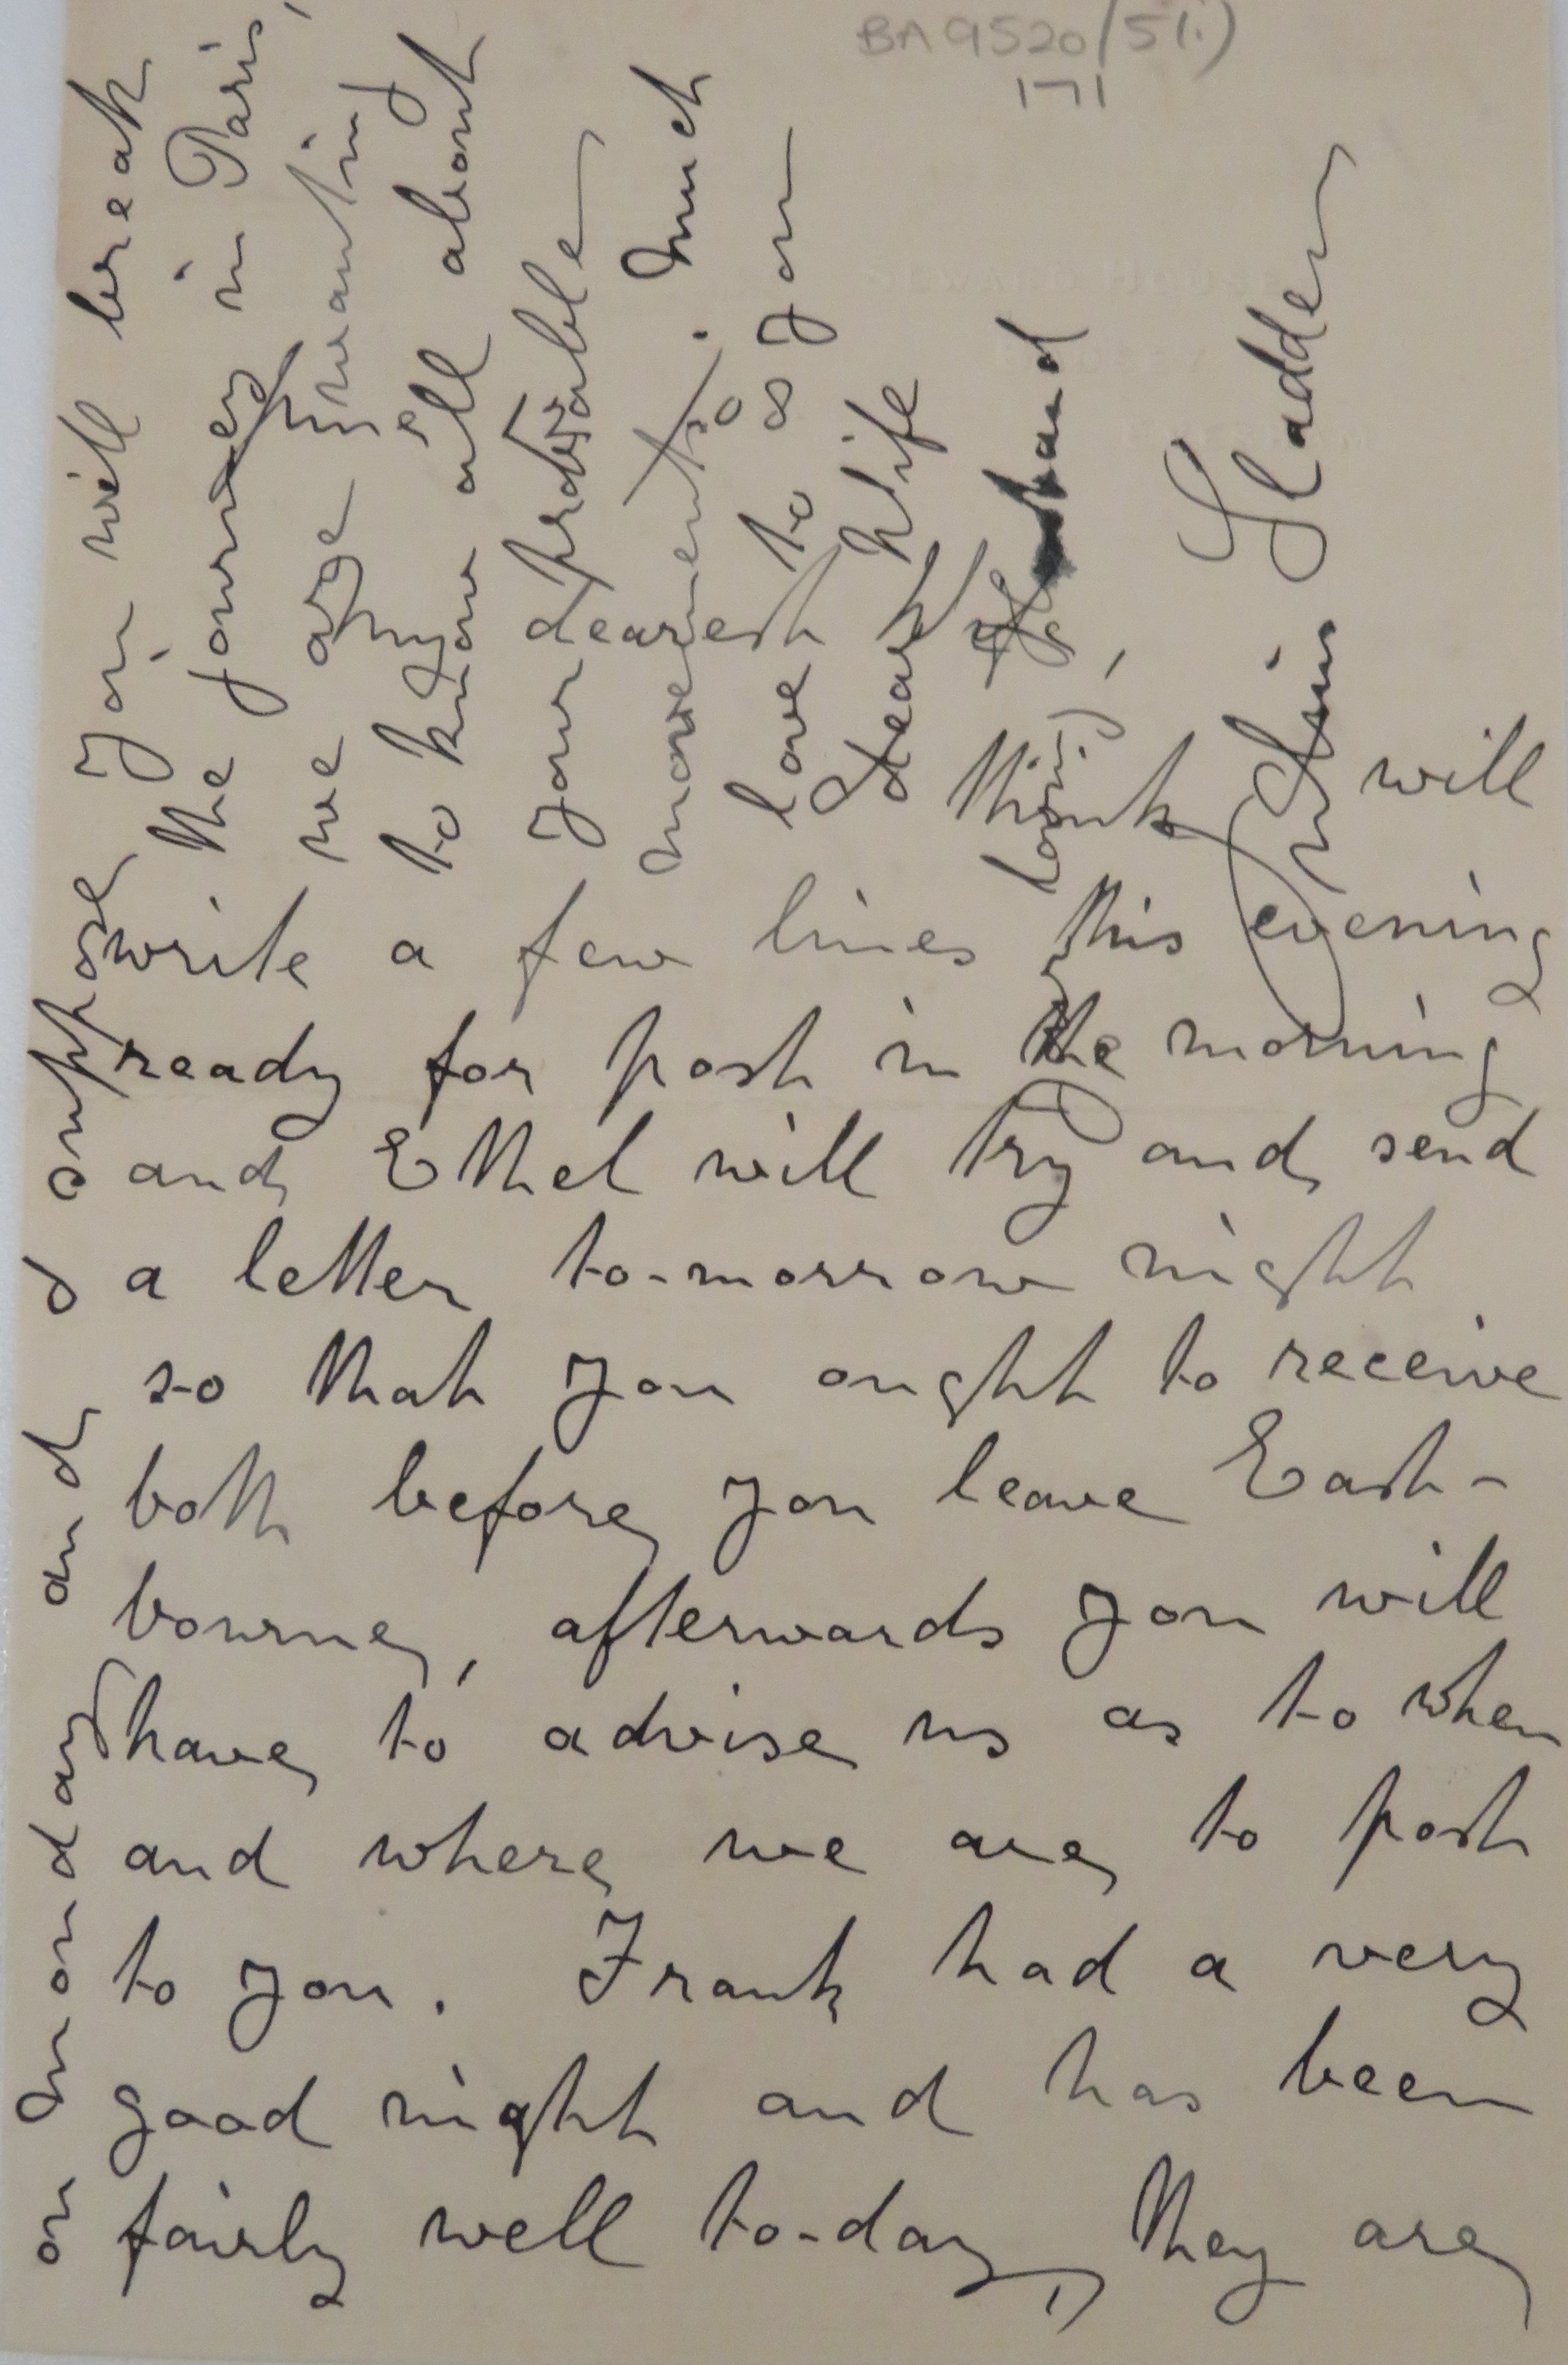 BA9520/5(1.)
171
My dearest Wife
think I will
write a few lines this evening
ready for post in the morning
and Ethel will try and send
a letter to-morrow night
so that you ought to receive
both before you leave East-
bourne, afterwards you will
have to advise us as to when
and where we are to post
to you. Frank had a very
good night and has been
fairly well to-day, they are
on Monday and I suppose you will break
the journey in Paris,
we are wanting
to know all about
your probable
movements. Much
love to you
dear Wife
loving husband
Julius Sladden